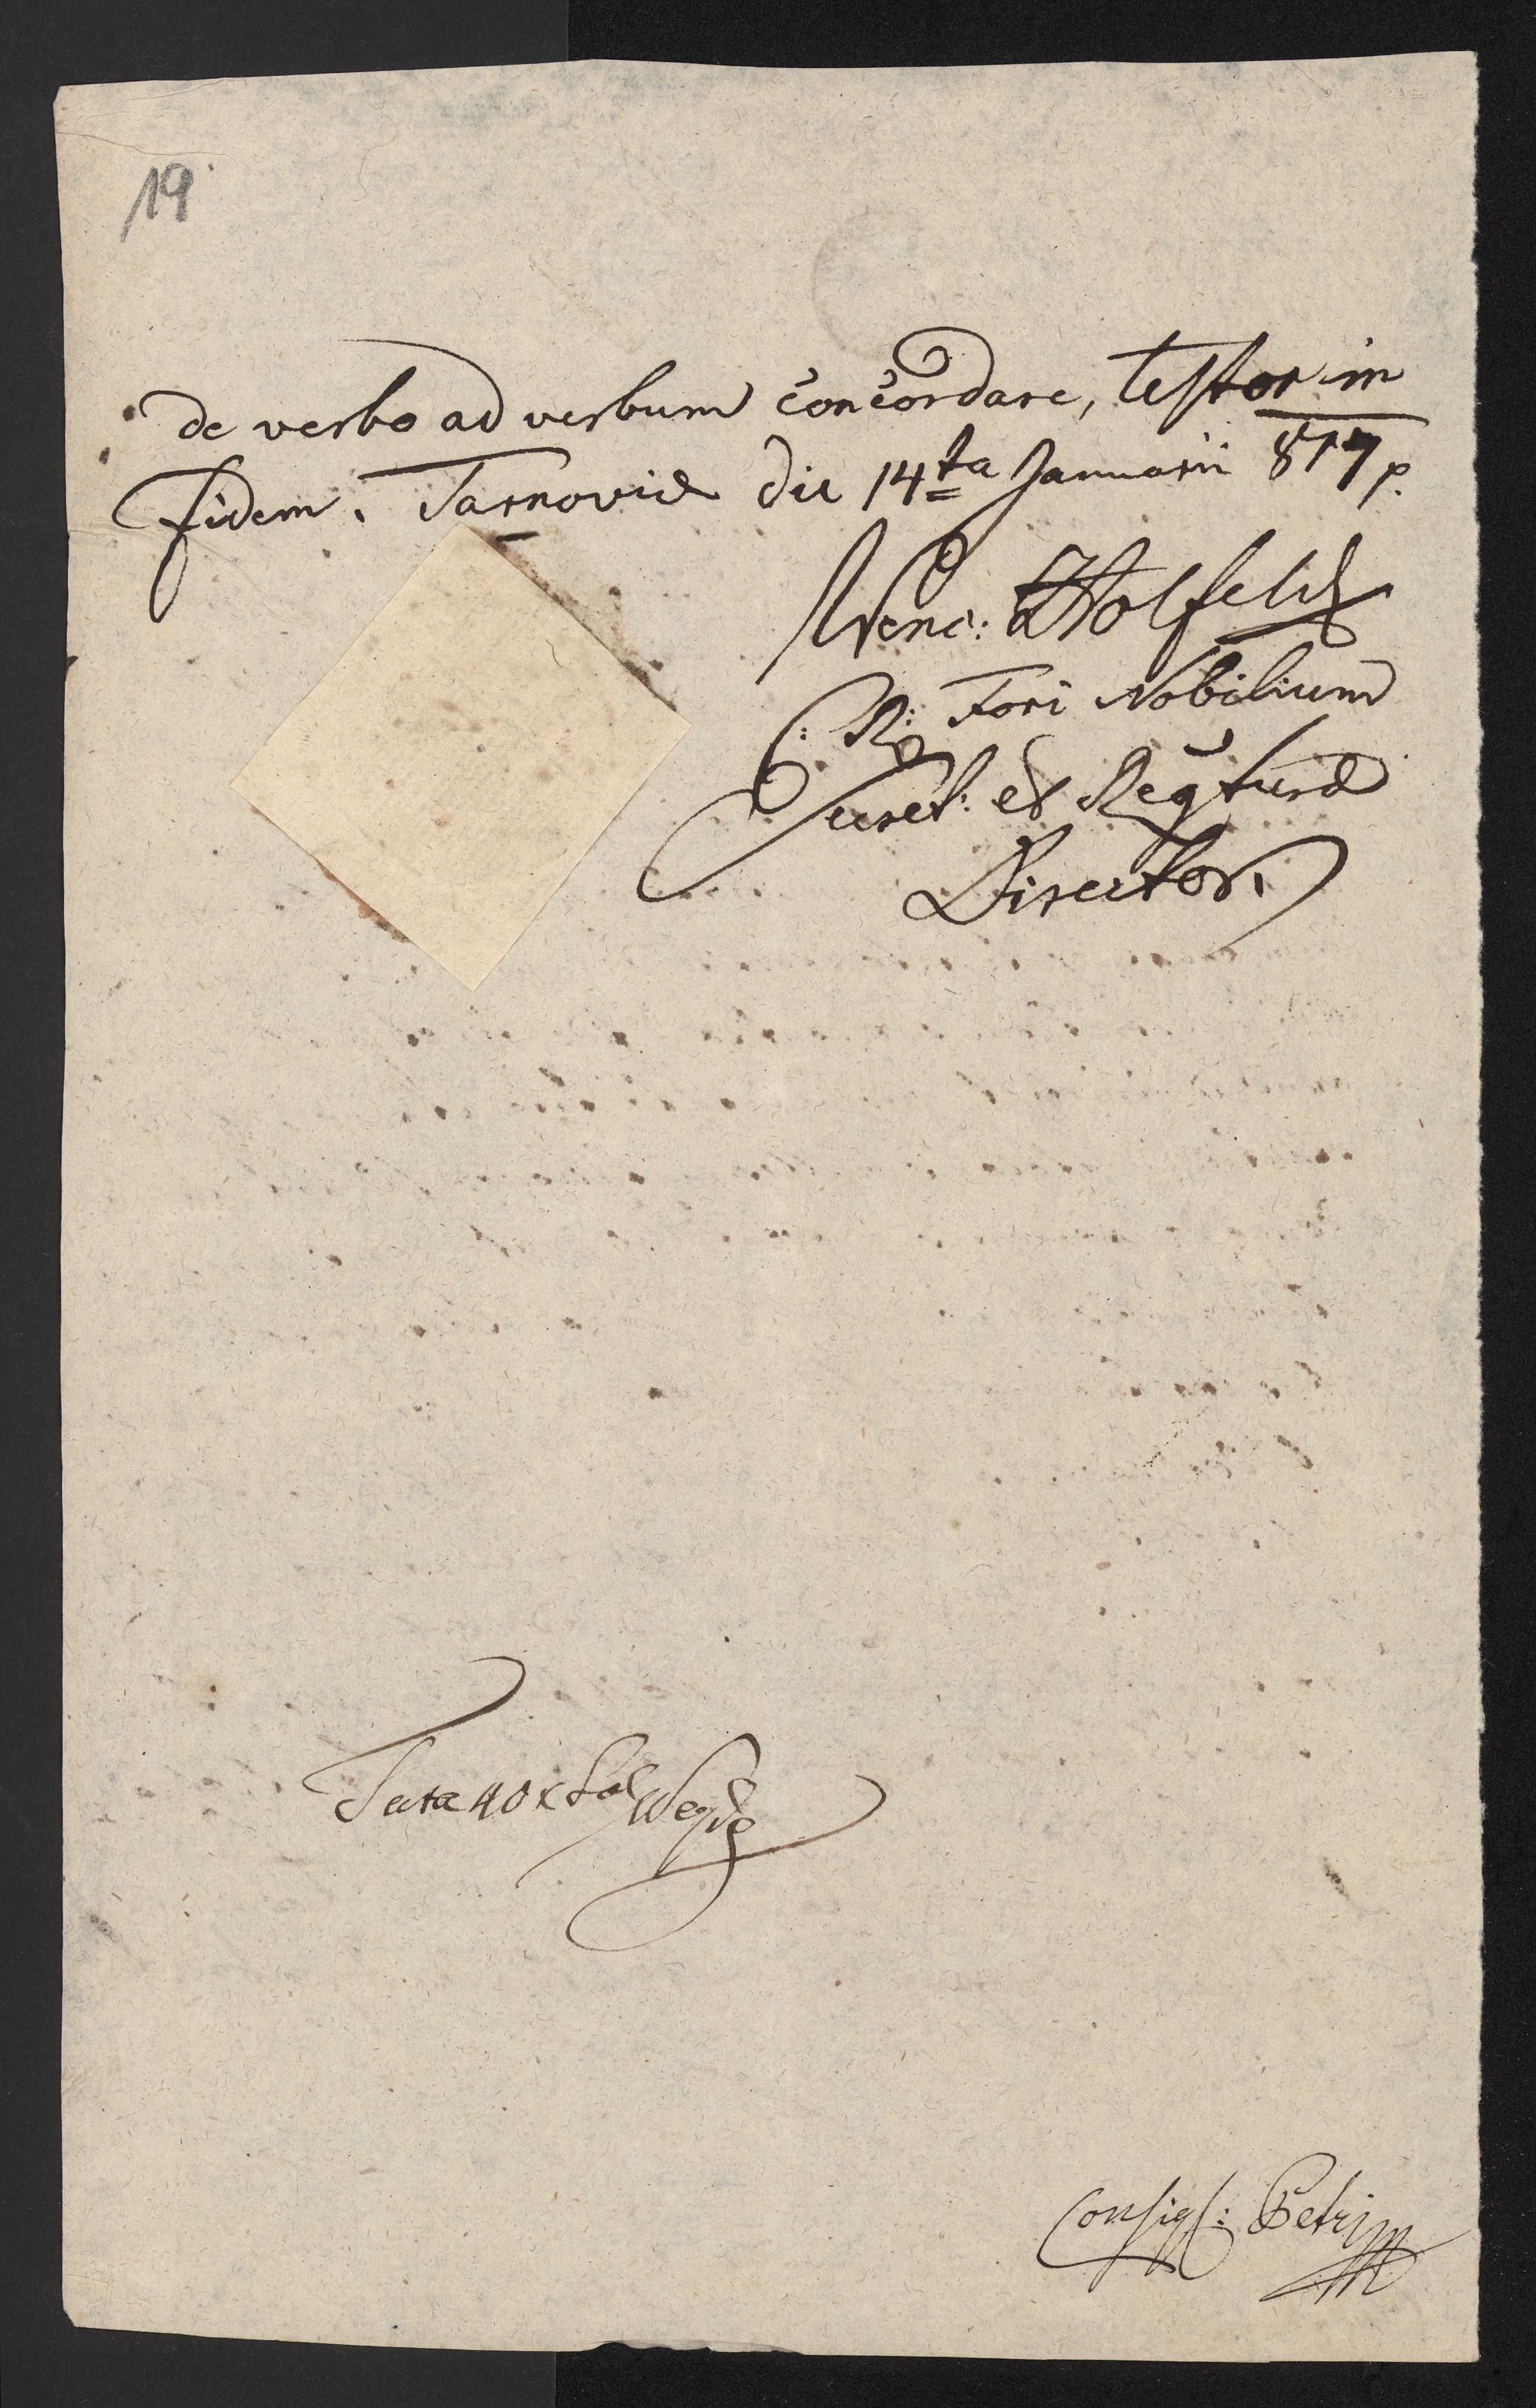 19
de verbo ad verbum concordare, testor in
fidem. Tarnoviæ die 14ta Januarii 817 p.
Venc: Holfeld
C: R: Fori Nobilium
et Regturæ
Director.
Taxa 40 x
Consig: Petri